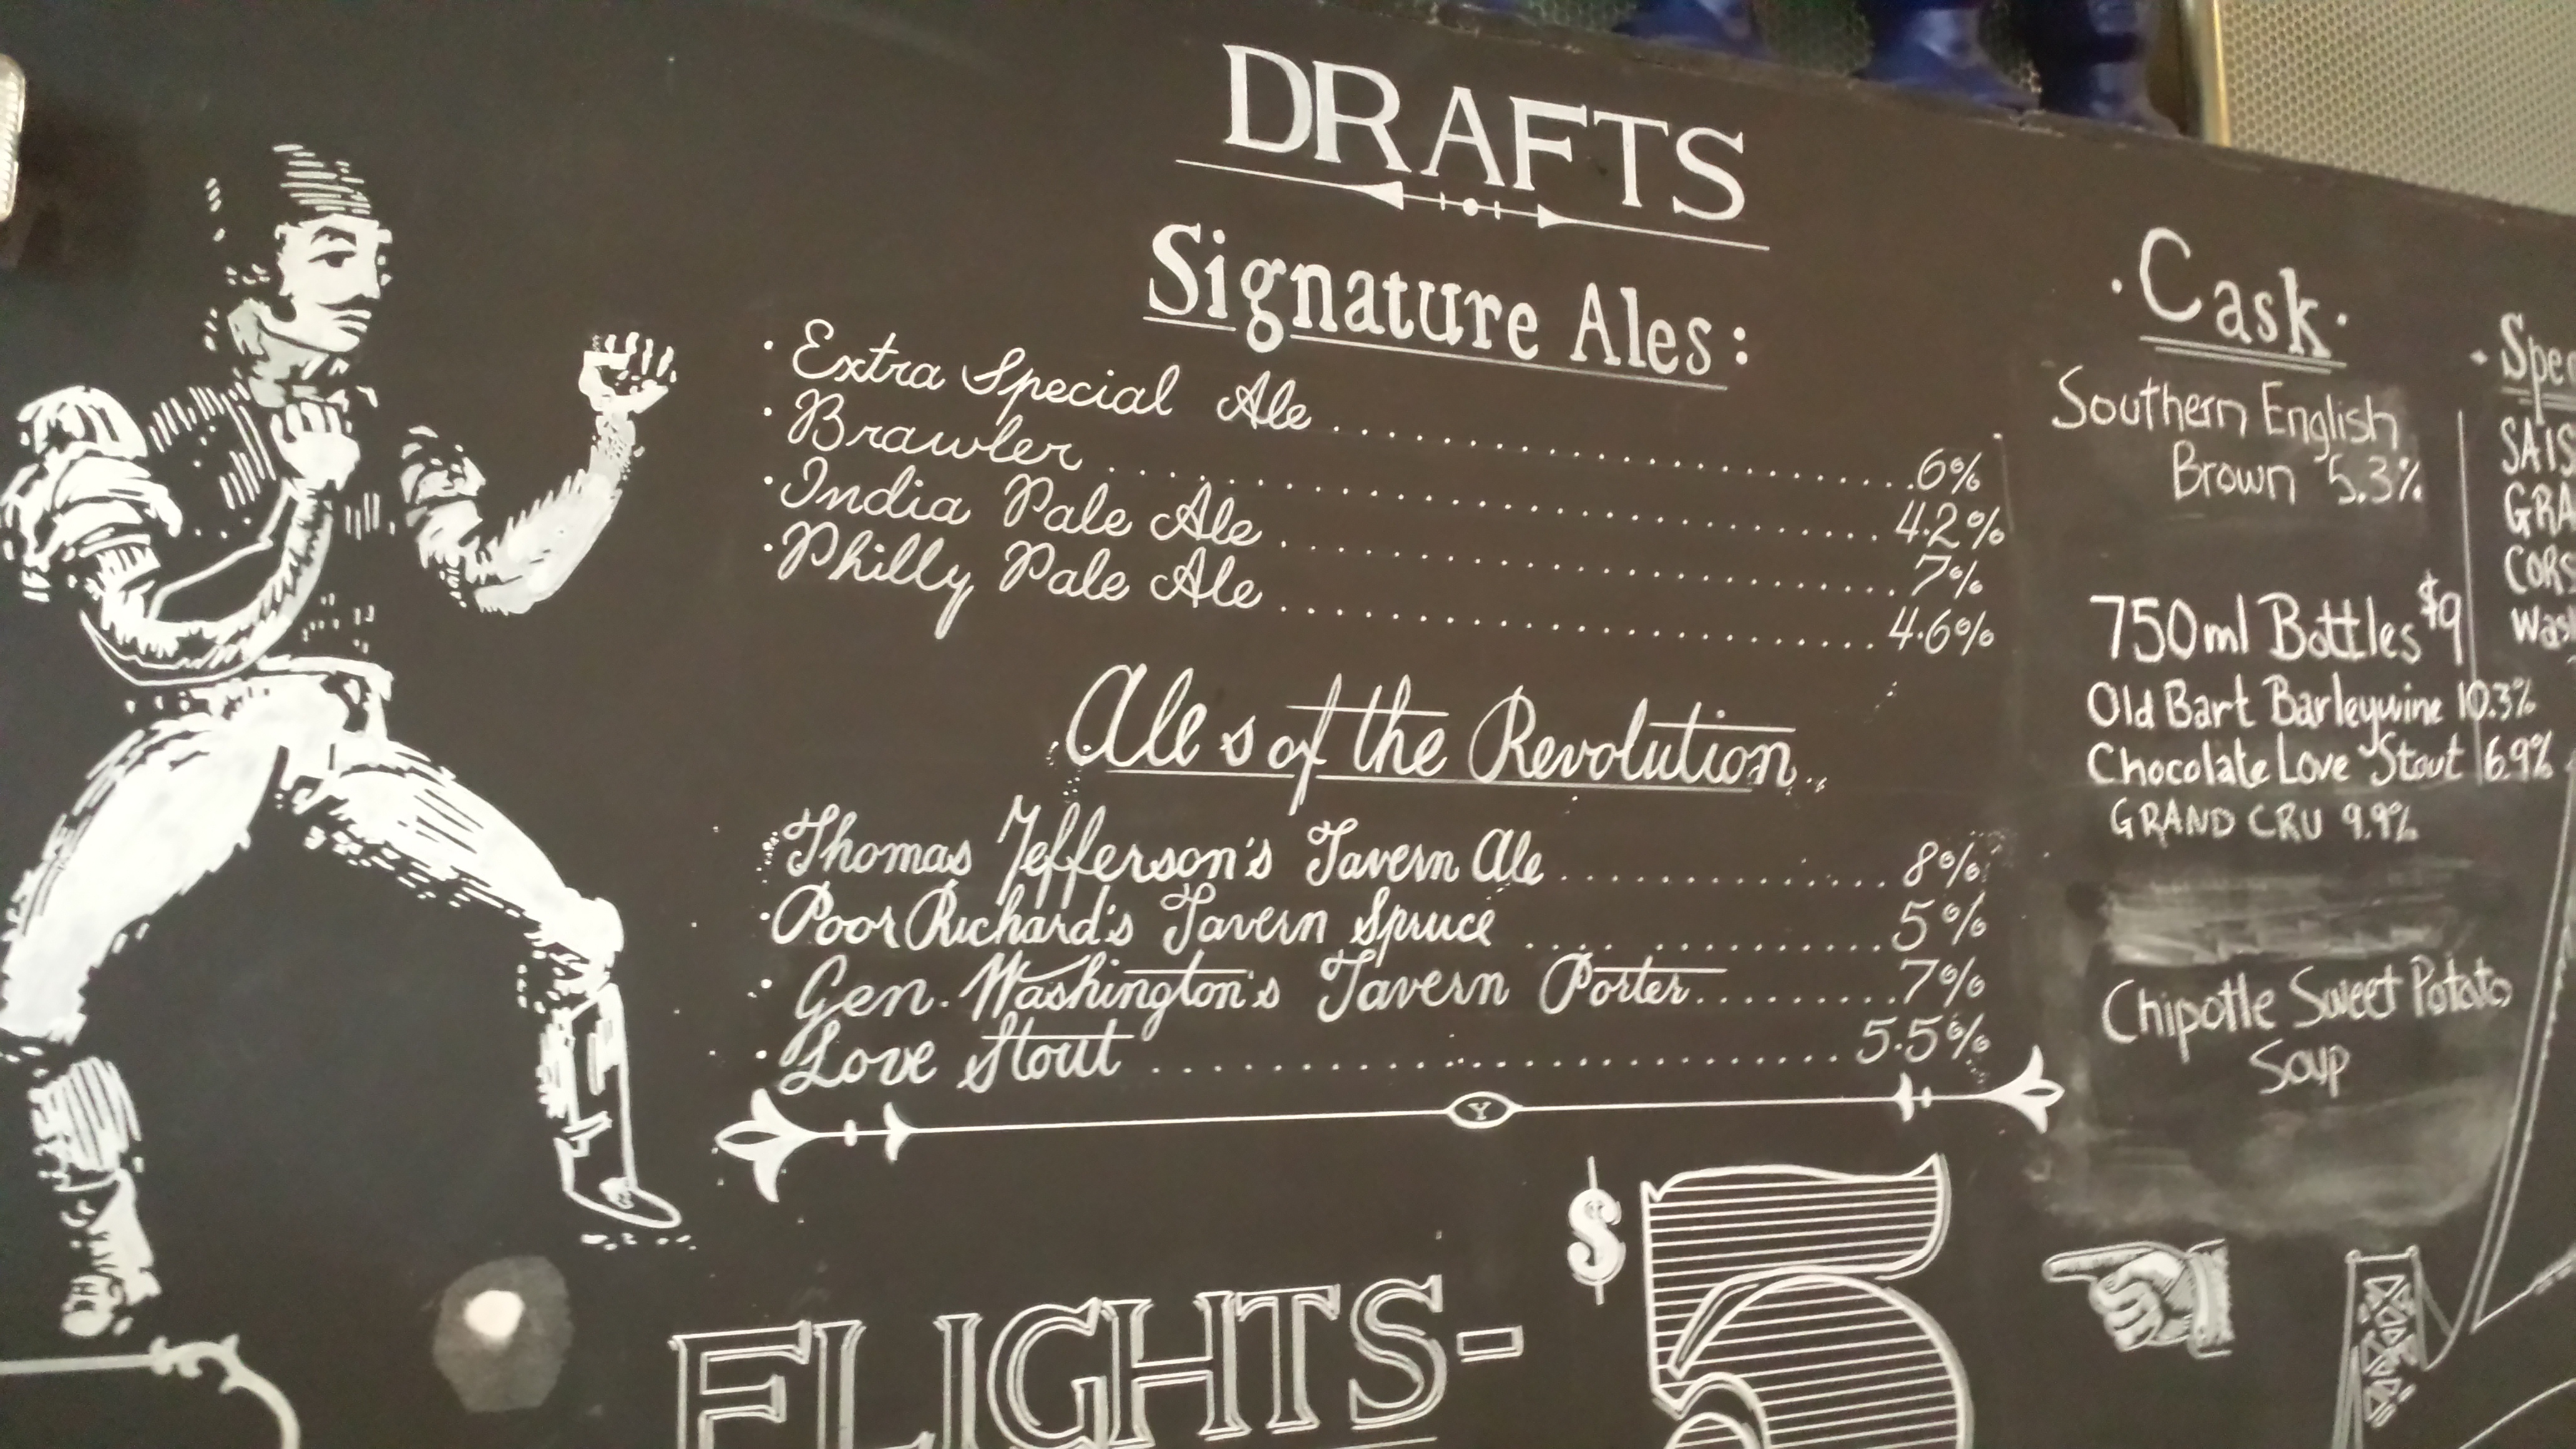 DRAFTS
Signature Ales:
· Extra Special Ale .......... 6%
· Brawler .......... 4.2%
· India Pale Ale .......... 7%
· Philly Pale Ale .......... 4.6%
Ales of the Revolution
· Thomas Jefferson's Tavern Ale .......... 8%
· Poor Richard's Tavern Spruce .......... 5%
· Gen. Washington's Tavern Porter .......... 7%
· Love Stout .......... 5.5%
Y
FLIGHTS- $5
· Cask ·
Southern English
Brown 5.3%
750ml Bottles $9
Old Bart Barleywine 10.3%
Chocolate Love Stout 6.9%
GRAND CRU 9.9%
Chipotle Sweet Potato
Soup